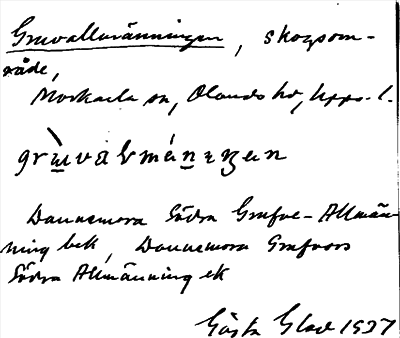 Gruvallmänningen, skogsom-
råde,
Morkarla sn, Olands hd, Upps. l.
Dannemora Södra Grufve-Allmän-
ning bek, Dannemora Grufvors
Södra Allmänning ek
Gösta Glad 1937